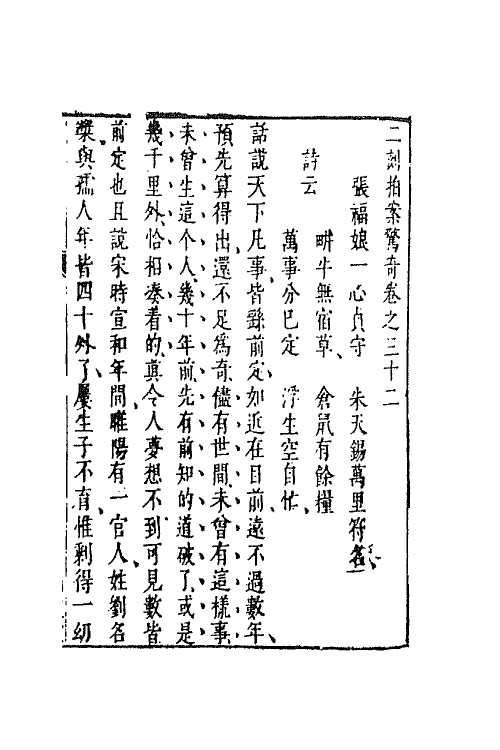 二刻拍案驚奇卷之三十二
張福娘一心貞守　朱天錫萬里符名
詩云
耕牛無宿草　倉鼠有餘糧
萬事分已定　浮生空自忙
話說天下凡事皆繇前定如近在目前遠不過數年
預先算得出還不足爲奇儘有世間未曾有這樣事
未曾生這个人幾十年前先有前知的道破了或是
幾千里外恰相湊着的真令人夢想不到可見數皆
前定也且說宋時宣和年間睢陽有一官人姓劉名
槳與孺人年皆四十外了屢生子不育惟剩得一幼